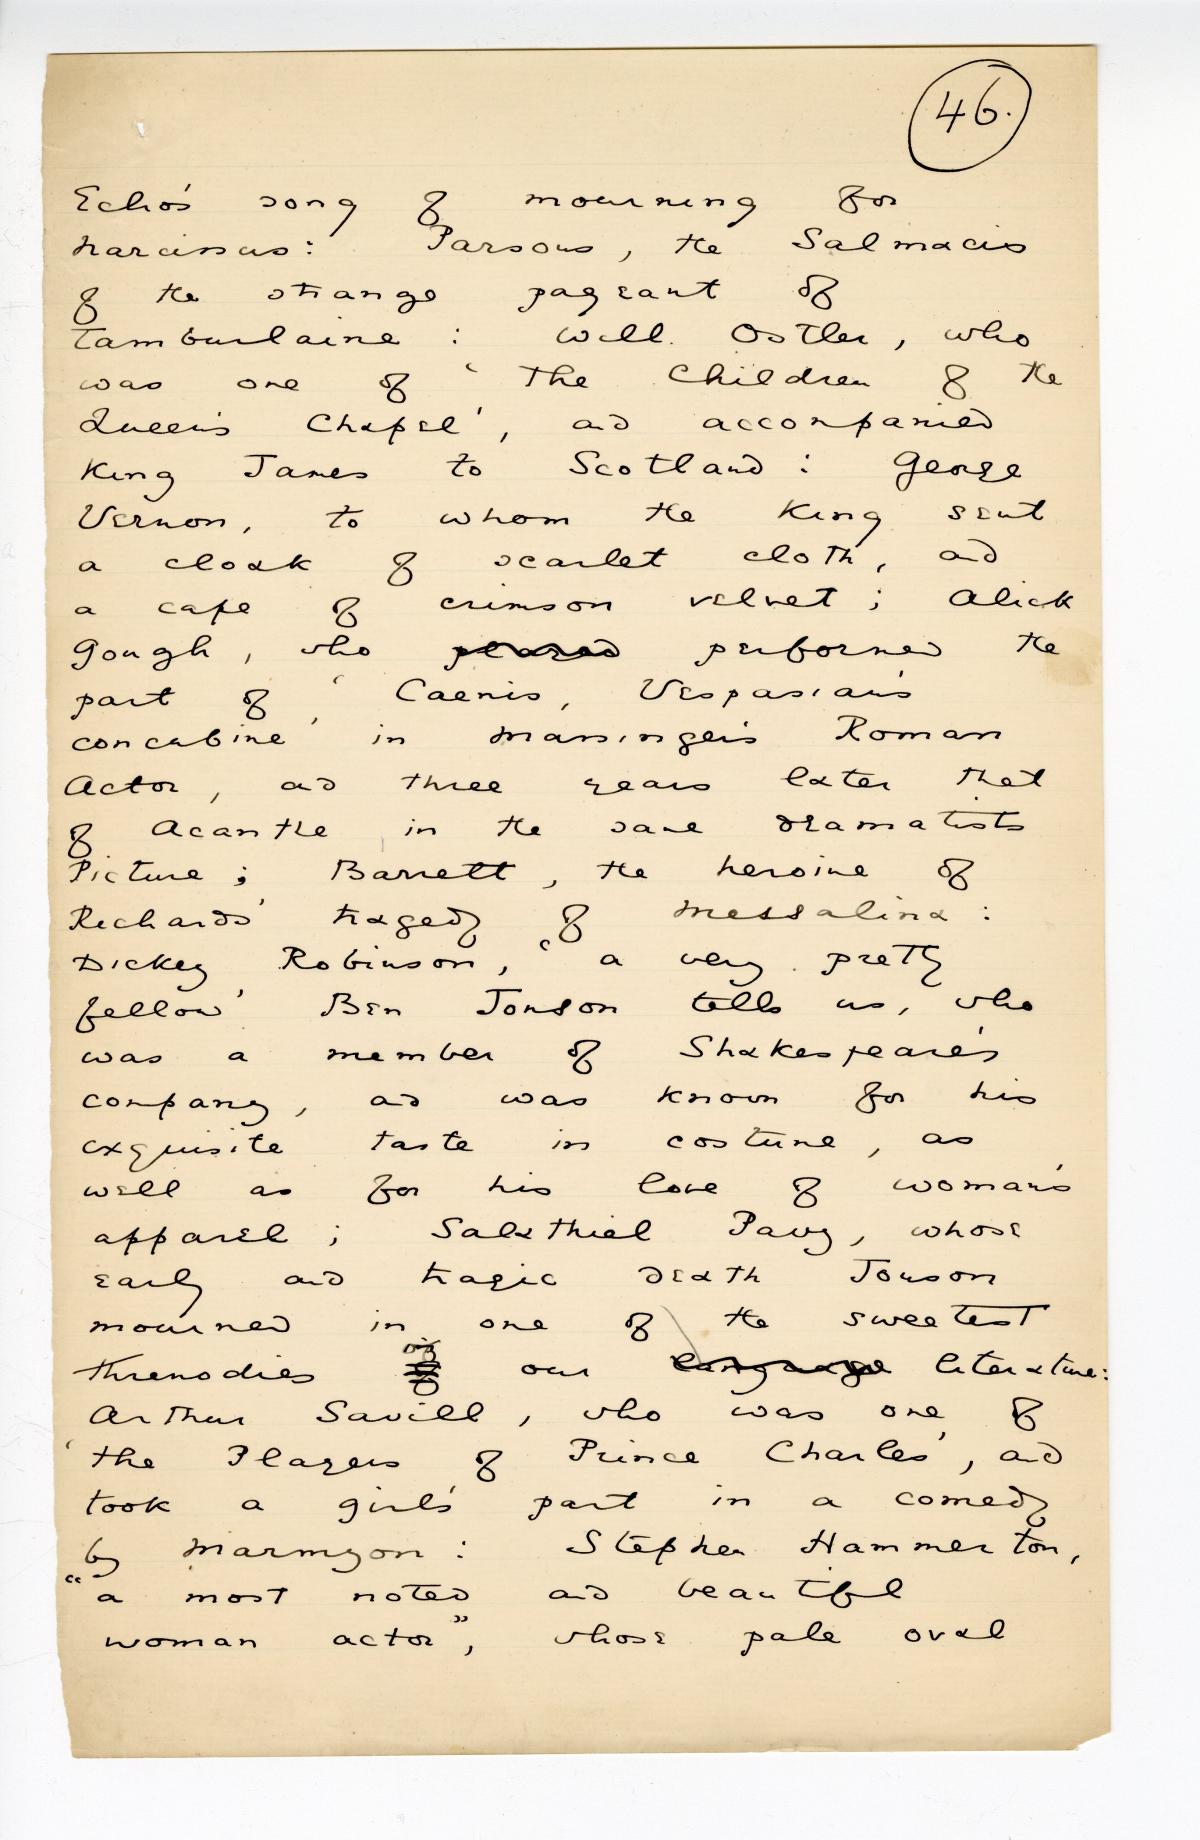 46.
Echo's song of mourning for
Narcissus: Parsons, the Salmacis
of the strange pageant of
Tamburlaine: Will. Ostler, who
was one of 'The Children of the
Queen's Chapel', and accompanied
King James to Scotland: George
Vernon, to whom the King sent
a cloak of scarlet cloth, and
a cape of crimson velvet; Alick
Gough, who played performed the
part of 'Caenis, Vespasian's
concubine' in Massinger's Roman
Actor, and three years later that
of Acanthe in the same dramatists
Picture; Barrett, the heroine of
Richards' tragedy of Messalina:
Dickey Robinson, 'a very pretty
fellow' Ben Jonson tells us, who
was a member of Shakespeare's
company, and was known for his
exquisite taste in costume, as
well as for his love of woman's
apparel; Salathiel Pavy, whose
early and tragic death Jonson
mourned in one of the sweetest
threnodies of our language literature:
Arthur Savill, who was one of
'the Players of Prince Charles', and
took a girl's part in a comedy
by Marmyon: Stephen Hammerton,
"a most noted and beautiful
woman actor", whose pale oval